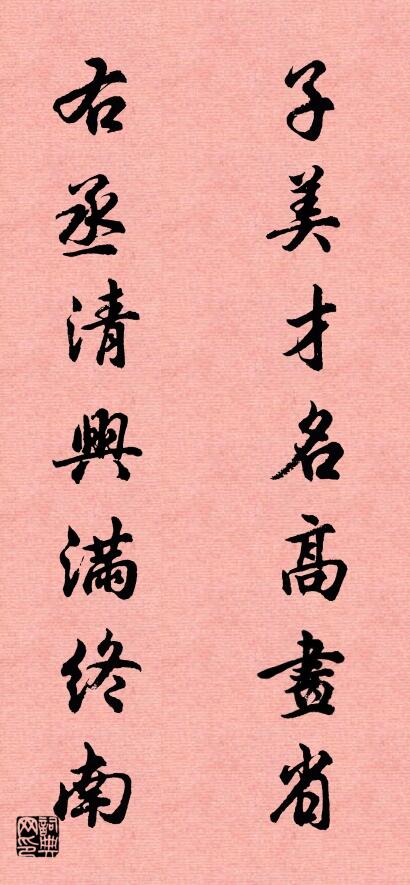 子美才名高畫省
右丞清興滿終南
詞典網印